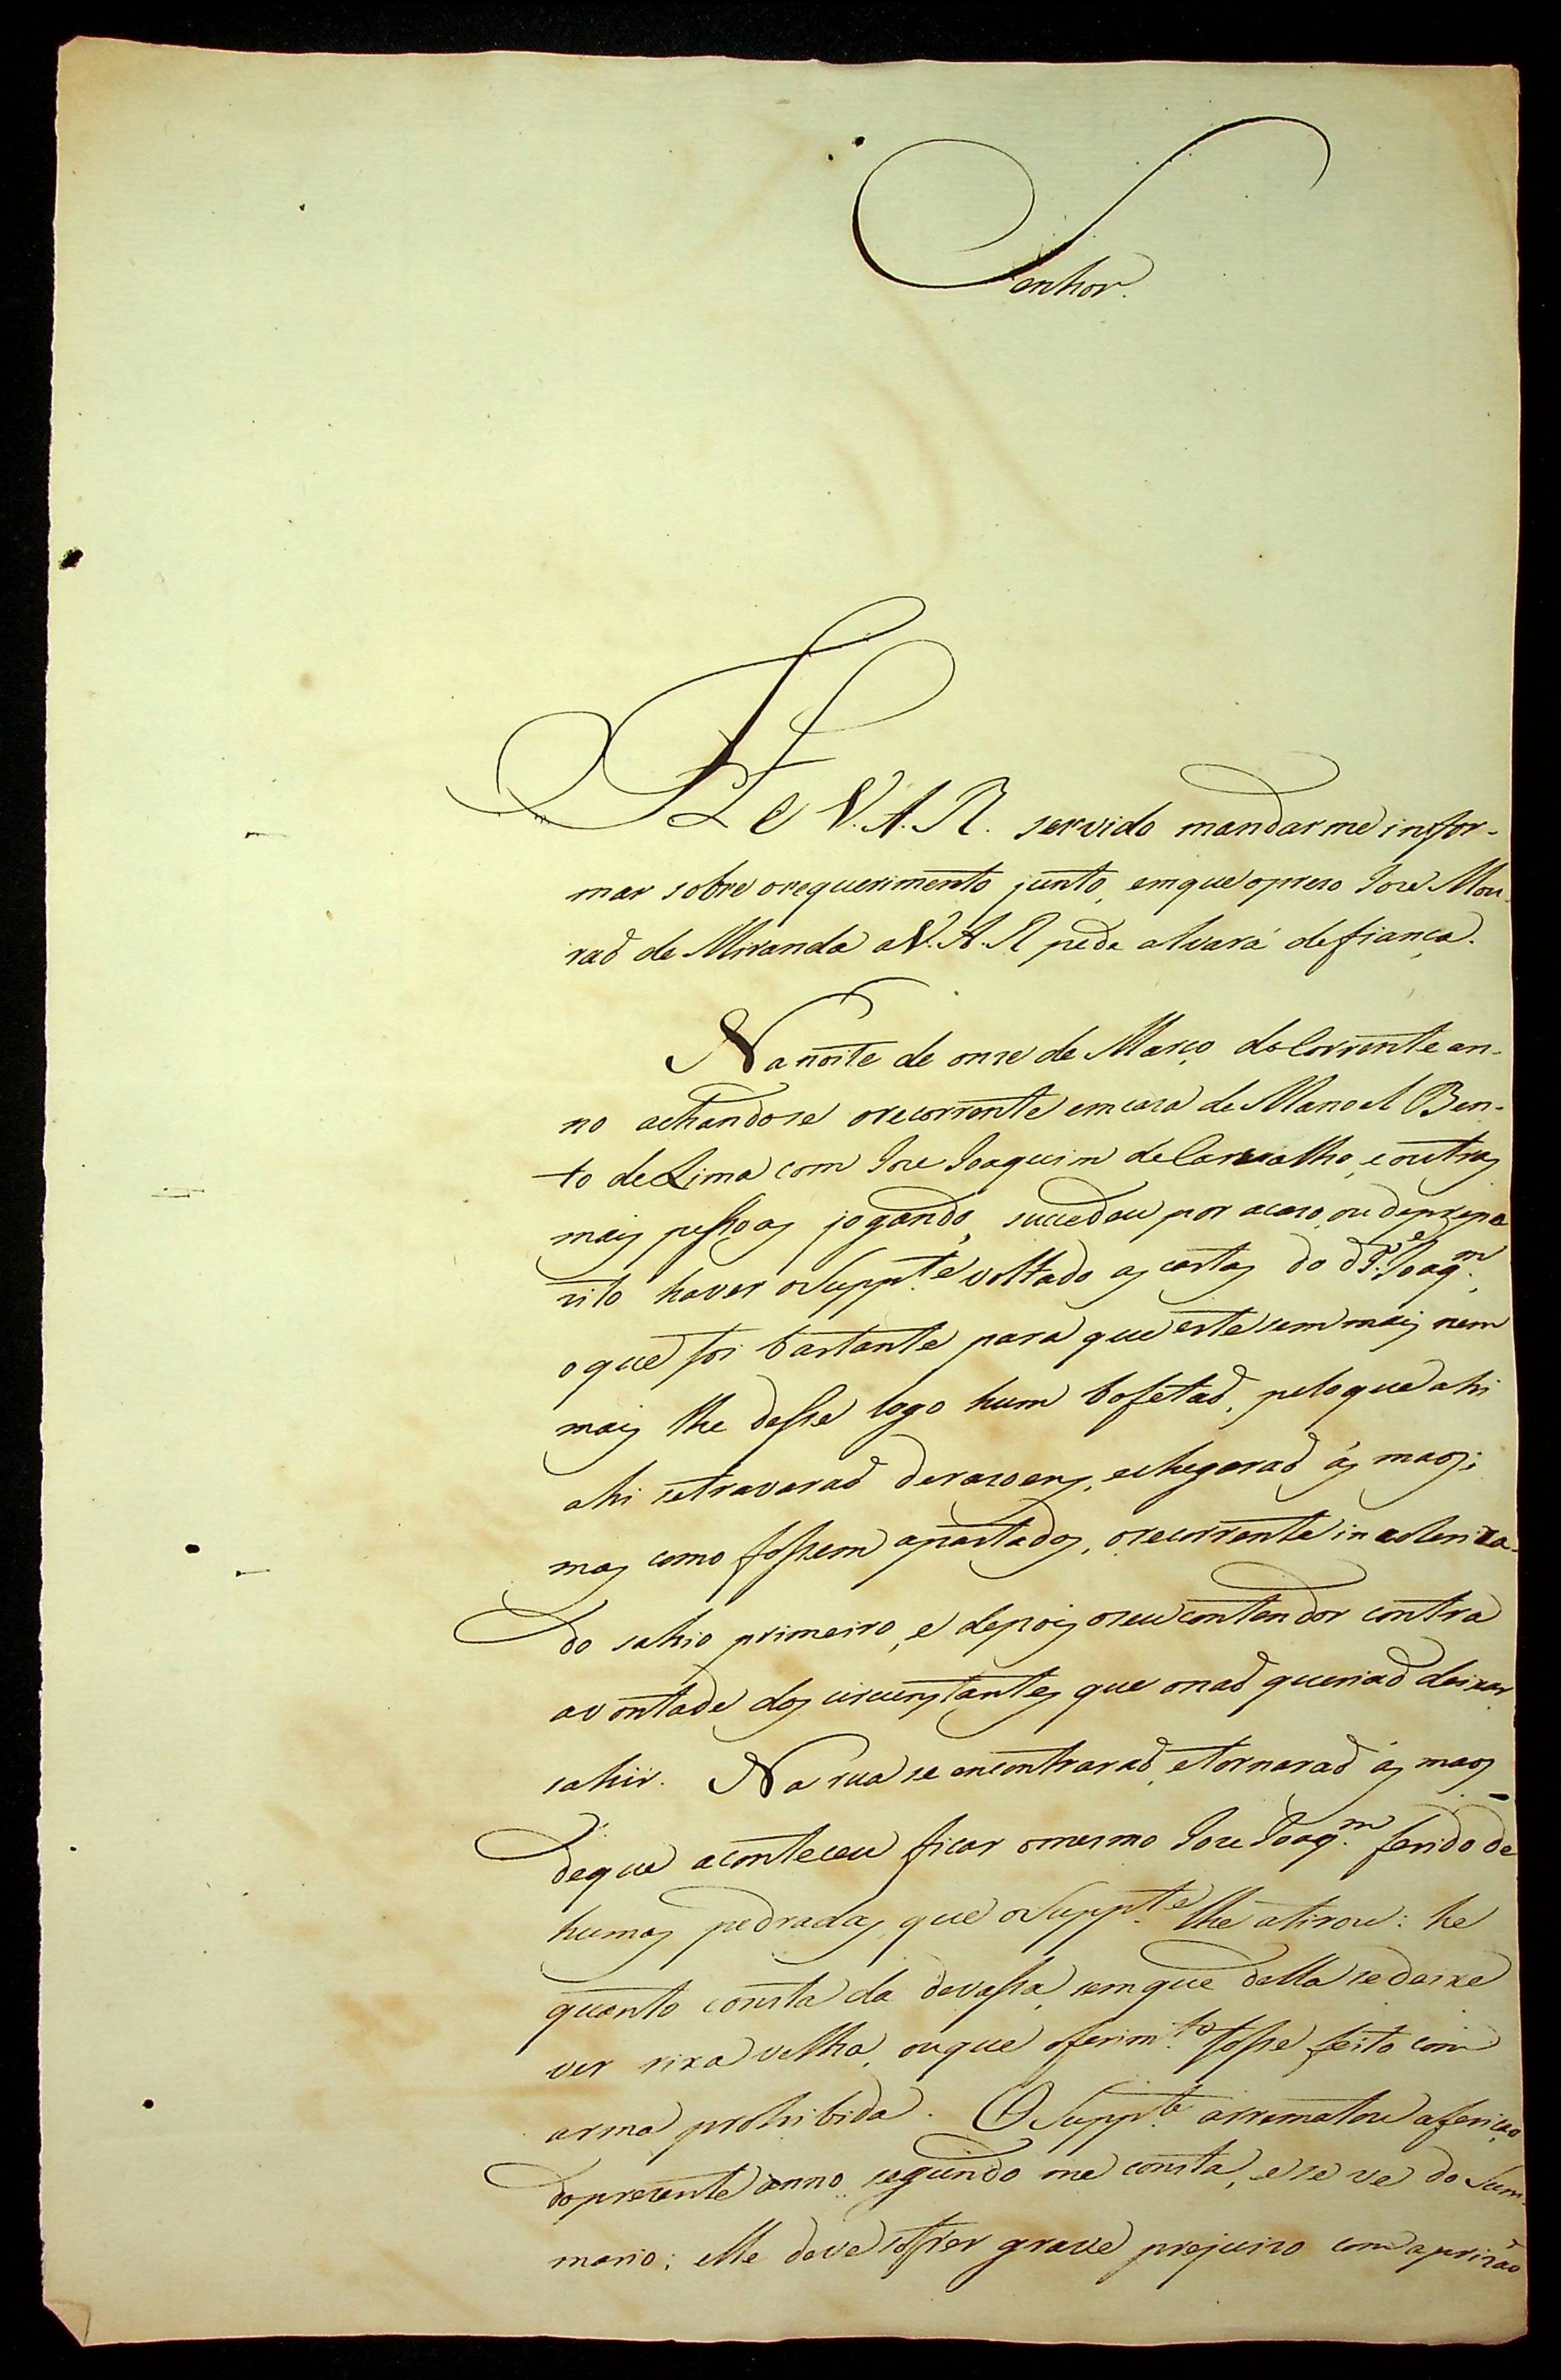 Senhor.
He V. A. R. servido mandarme infor-
mar sobre orequerimento junto, emque opreso Joze Mou-
raõ de Miranda aV. A. R pede alvará defiança.
Na noite de onze de Março do Corrente an-
no achandose orecorrente emcaza de Manoel Ben-
to deLima com Joze Joaquim deCarvalho, eoutras
mais pessoas jogando, succedeu por acazo, ou depropo
zito haver oSuppte voltado as cartas do do Joaqm.
oque foi bastante para que este sem mais nem
mais lhe desse logo hum bofetaõ, peloque ahi
ahi setravaraõ derazoens, echegaraõ ás maos;
mas como fossem apartados, orecorrente incoleriza-
do sahio primeiro, e depois oseu contendor contra
avontade dos circunstantes que onaõ queriaõ deixar
sahir. Na rua se encontraraõ, etornaraõ ás maos
deque aconteceu ficar omesmo Joze Joaqm. ferido de
humas pedradas, que oSuppte lhe atirou: he
quanto consta da devassa, semque della sedeixe
ver rixa velha, ouque oferimto. fosse feito com
arma prohibida. O Suppte arrematou aferiçaõ
dopresente anno segundo me consta, ese ve do Sum-
mario; elle deve soffrer grave prejuizo com aprizaõ